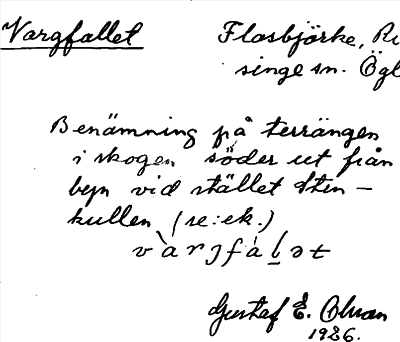 Vargfallet Flasbjörke, Ri
singe sn. Ögl
Benämning på terrängen
i skogen söder ut från
byn vid stället Sten-
kullen (se: ek.)
Gustaf E.
1926.